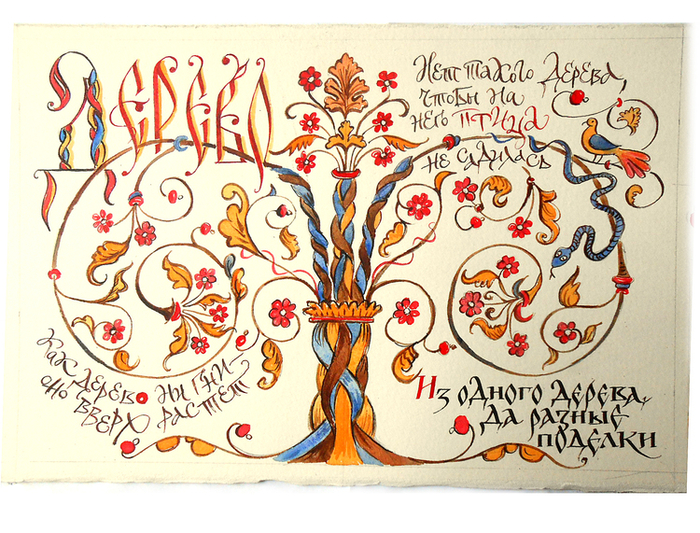 ДЕРЕВО
Нет такого дерева,
чтобы на
него птица
не садилась
Как дерево ни гни –
оно вверх растет
Из одного дерева,
да разные
поделки